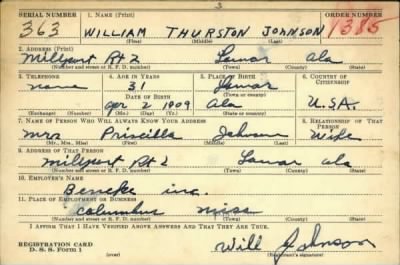 3
SERIAL NUMBER 1. NAME (Print) ORDER NUMBER
363 WILLIAM THURSTON JOHNSON 1385
(First) (Middle) (Last)
2. ADDRESS (Print)
Millport Rt 2 Lamar Ala
(Number and street or R. F. D. number) (Town) (County) (State)
3. TELEPHONE 4. AGE IN YEARS 5. PLACE OF BIRTH 6. COUNTRY OF CITIZENSHIP
none 31 Lamar
DATE OF BIRTH (Town or county)
Apr 2 1909 Ala U.S.A.
(Exchange) (Number) (Mo.) (Day) (Yr.) (State or country)
7. NAME OF PERSON WHO WILL ALWAYS KNOW YOUR ADDRESS 8. RELATIONSHIP OF THAT PERSON
Mrs Priscilla Johnson Wife
(Mr., Mrs., Miss) (First) (Middle) (Last)
9. ADDRESS OF THAT PERSON
Millport Rt 2 Lamar Ala
(Number and street or R. F. D. number) (Town) (County) (State)
10. EMPLOYER'S NAME
Beneke inc.
11. PLACE OF EMPLOYMENT OR BUSINESS
Columbus Miss
(Number and street or R. F. D. number) (Town) (County) (State)
I AFFIRM THAT I HAVE VERIFIED ABOVE ANSWERS AND THAT THEY ARE TRUE.
REGISTRATION CARD
D. S. S. Form 1 (over) Will Johnson
(Registrant's signature)